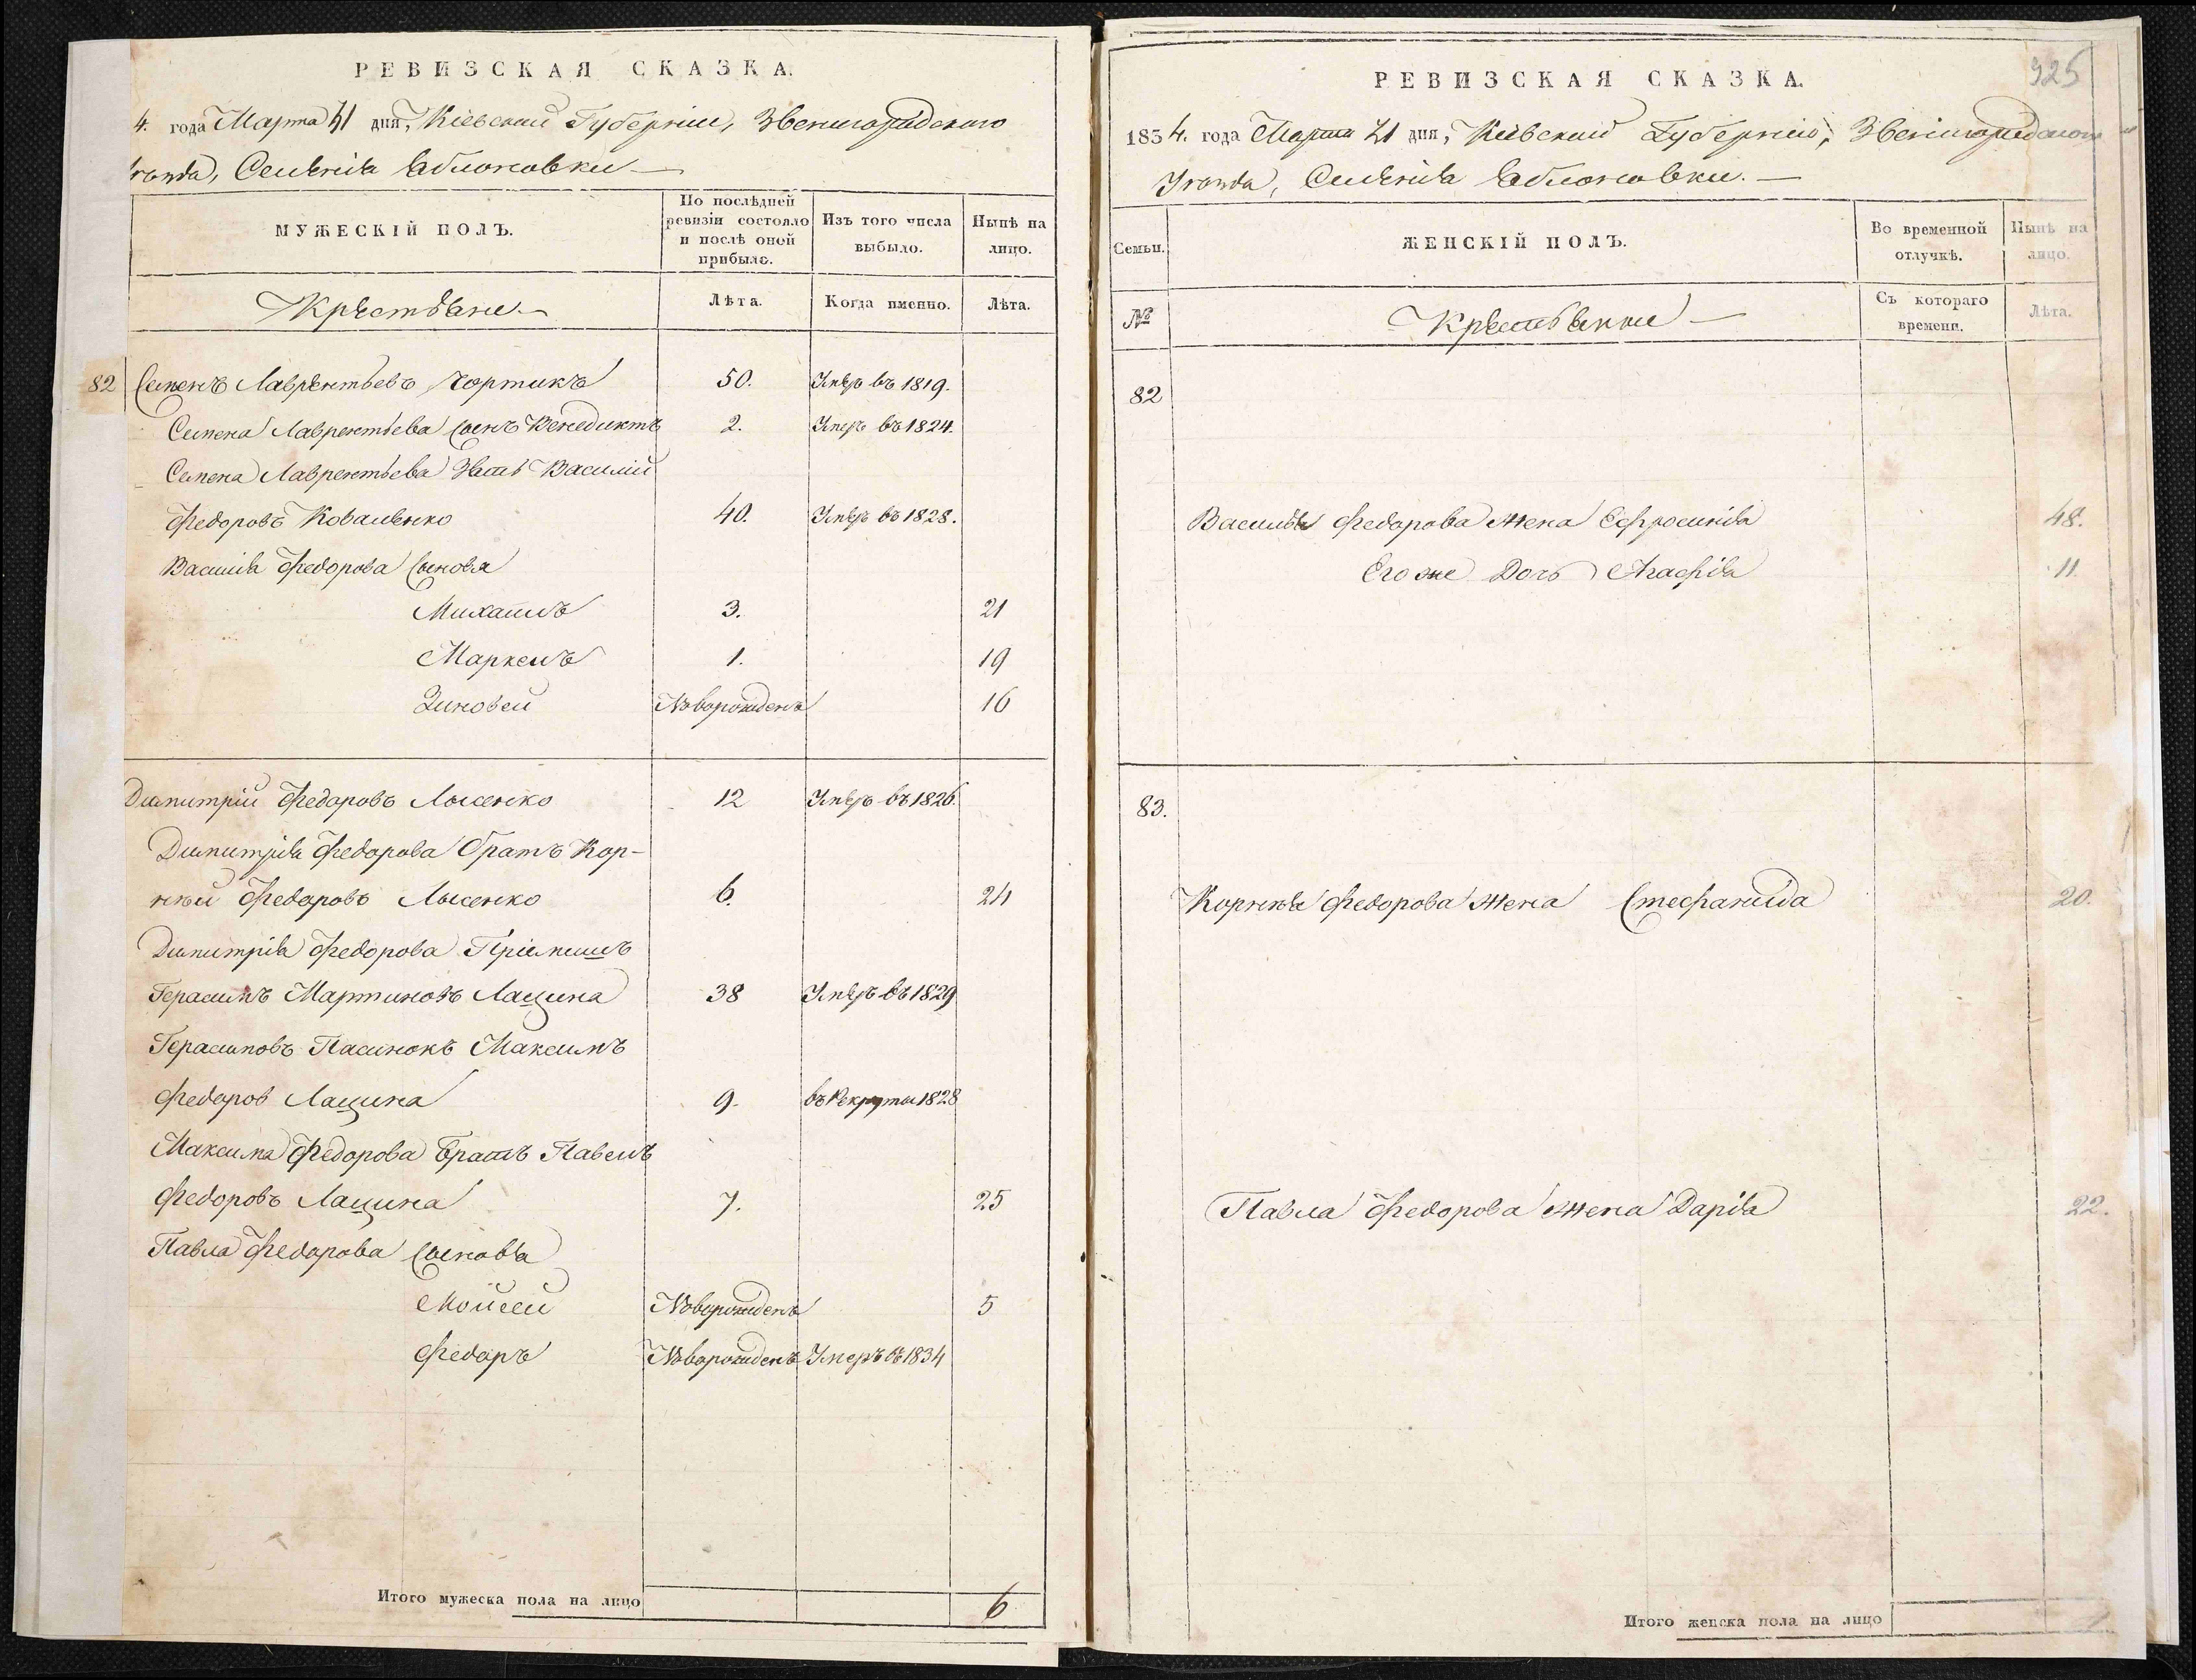 РЕВИЗСКАЯ СКАЗКА.
4. года Марта 21 дня, Кіевской Губерніи, Звенигородского
уезда, Селенія Яблоновки
МУЖЕСКІЙ ПОЛЪ.
По послѣдней ревизіи состояло и послѣ оной прибыло.
Изъ того числа выбыло.
Нынѣ на лицо.
Крестьяне
Лѣта.
Когда именно.
Лѣта.
82 Семенъ Лаврентьевъ Чортикъ 50. Умеръ въ 1819.
Семена Лаврентьева сынъ Венедиктъ 2. Умеръ въ 1824.
Семена Лаврентьева Зять Василій
Федоровъ Коваленко 40. Умеръ въ 1828.
Василія Федорова сыновя
Михаилъ 3. 21
Маркелъ 1. 19
Зиновей Новорожденъ 16
Димитрій Федоровъ Лысенко 12 Умеръ въ 1826.
Димитрія Федорова братъ Кор-
нѣй Федоровъ Лысенко 6. 24
Димитрія Федорова Пріемишъ
Герасимъ Мартиновъ Лащина 38 Умеръ въ 1829
Герасимовъ Пасинокъ Максимъ
Федоров Лащина 9. въ Рекруты 1828
Максима Федорова Братъ Павелъ
Федоровъ Лащина 7. 25
Павла Федорова сыновья
Мойсей Новорожденъ 5
Федоръ Новорожденъ Умеръ въ 1834
Итого мужеска пола на лицо 6
925
РЕВИЗСКАЯ СКАЗКА.
1834. года Марта 21 дня, Кіевской Губерніи, Звенигородского
Уезда, Селенія Яблоновки.
Семьи.
ЖЕНСКІЙ ПОЛЪ.
Во временной отлучкѣ.
Нынѣ на лицо.
№
Крестьянки
Съ котораго времени.
Лѣта.
82
Василья Федорова жена Ефросинія 48.
Его же Дочь Агафія 11.
83.
Корнѣя Федорова жена Стефанида 20.
Павла Федорова жена Дарія 22.
Итого женска пола на лицо